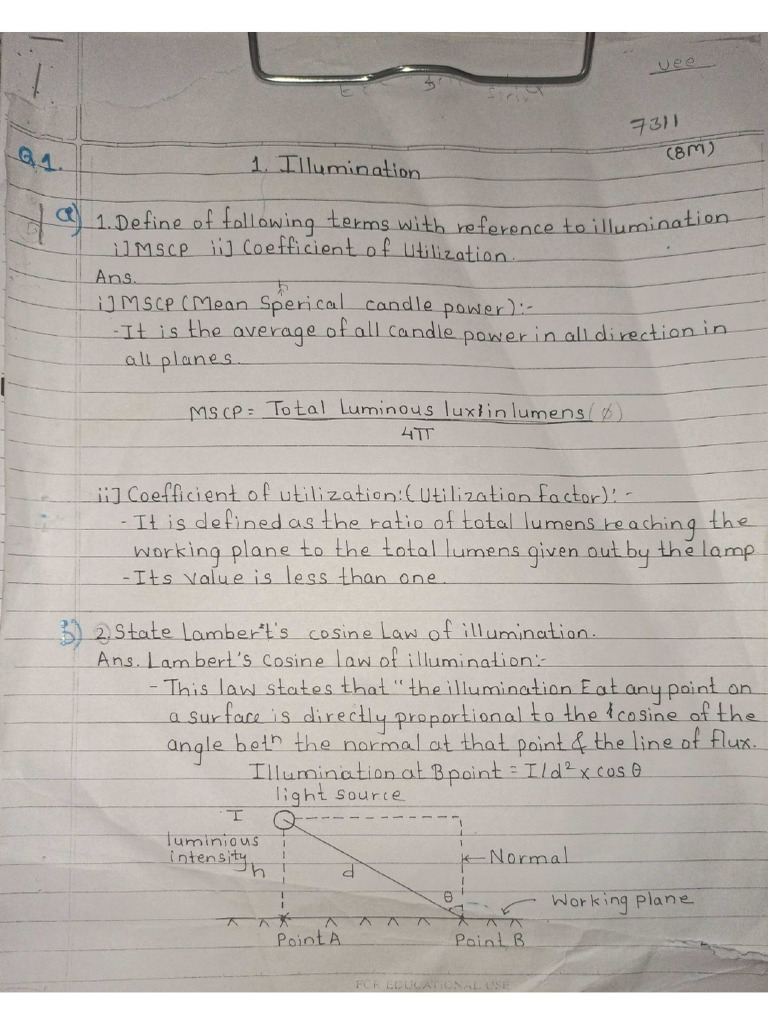 uee
7311
(8M)
Q1. 1. Illumination
a) 1. Define of following terms with reference to illumination
i] MSCP ii] Coefficient of Utilization.
Ans.
i] MSCP (Mean Sperical candle power):-
h
- It is the average of all candle power in all direction in
all planes.
MSCP = Total Luminous lux in lumens (φ)
4π
ii] Coefficient of utilization: (Utilization factor):-
- It is defined as the ratio of total lumens reaching the
working plane to the total lumens given out by the lamp
- Its value is less than one.
b) 2. State Lambert's cosine Law of illumination.
Ans. Lambert's cosine law of illumination:-
- This law states that "the illumination E at any point on
a surface is directly proportional to the cosine of the
angle betn the normal at that point & the line of flux.
Illumination at B point = I/d² x cos θ
light source
I
luminious
intensity h d ← Normal
θ Working plane
Point A Point B
FOR EDUCATIONAL USE